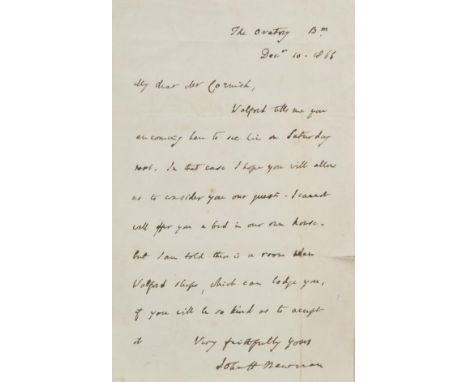 The Oratory Bm
Decr 10. 1866
My dear Mr Cornish,
Walford tells me you
are coming here to see him on Saturday
next. In that case I hope you will allow
us to consider you our guest. I cannot
well offer you a bed in our own house.
but I am told there is a room where
Walford sleeps, which can lodge you,
if you will be so kind as to accept
it Very faithfully yours
John H Newman